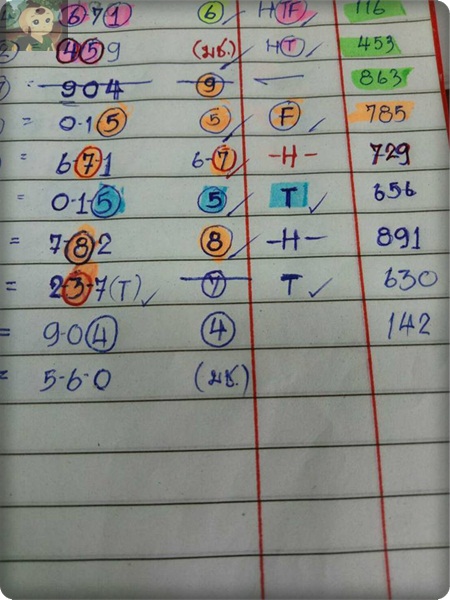 6·7·1 6 HTF 116
459 (มช.) HT 453
904 9 — 863
= 0·1·5 5 F 785
= 6·7·1 6·7 -H- 729
= 0·1·5 5 T 656
= 7·8·2 8 -H- 891
= 2·3·7(T) 7 T 630
= 9·0·4 4 142
= 5·6·0 (มช.)